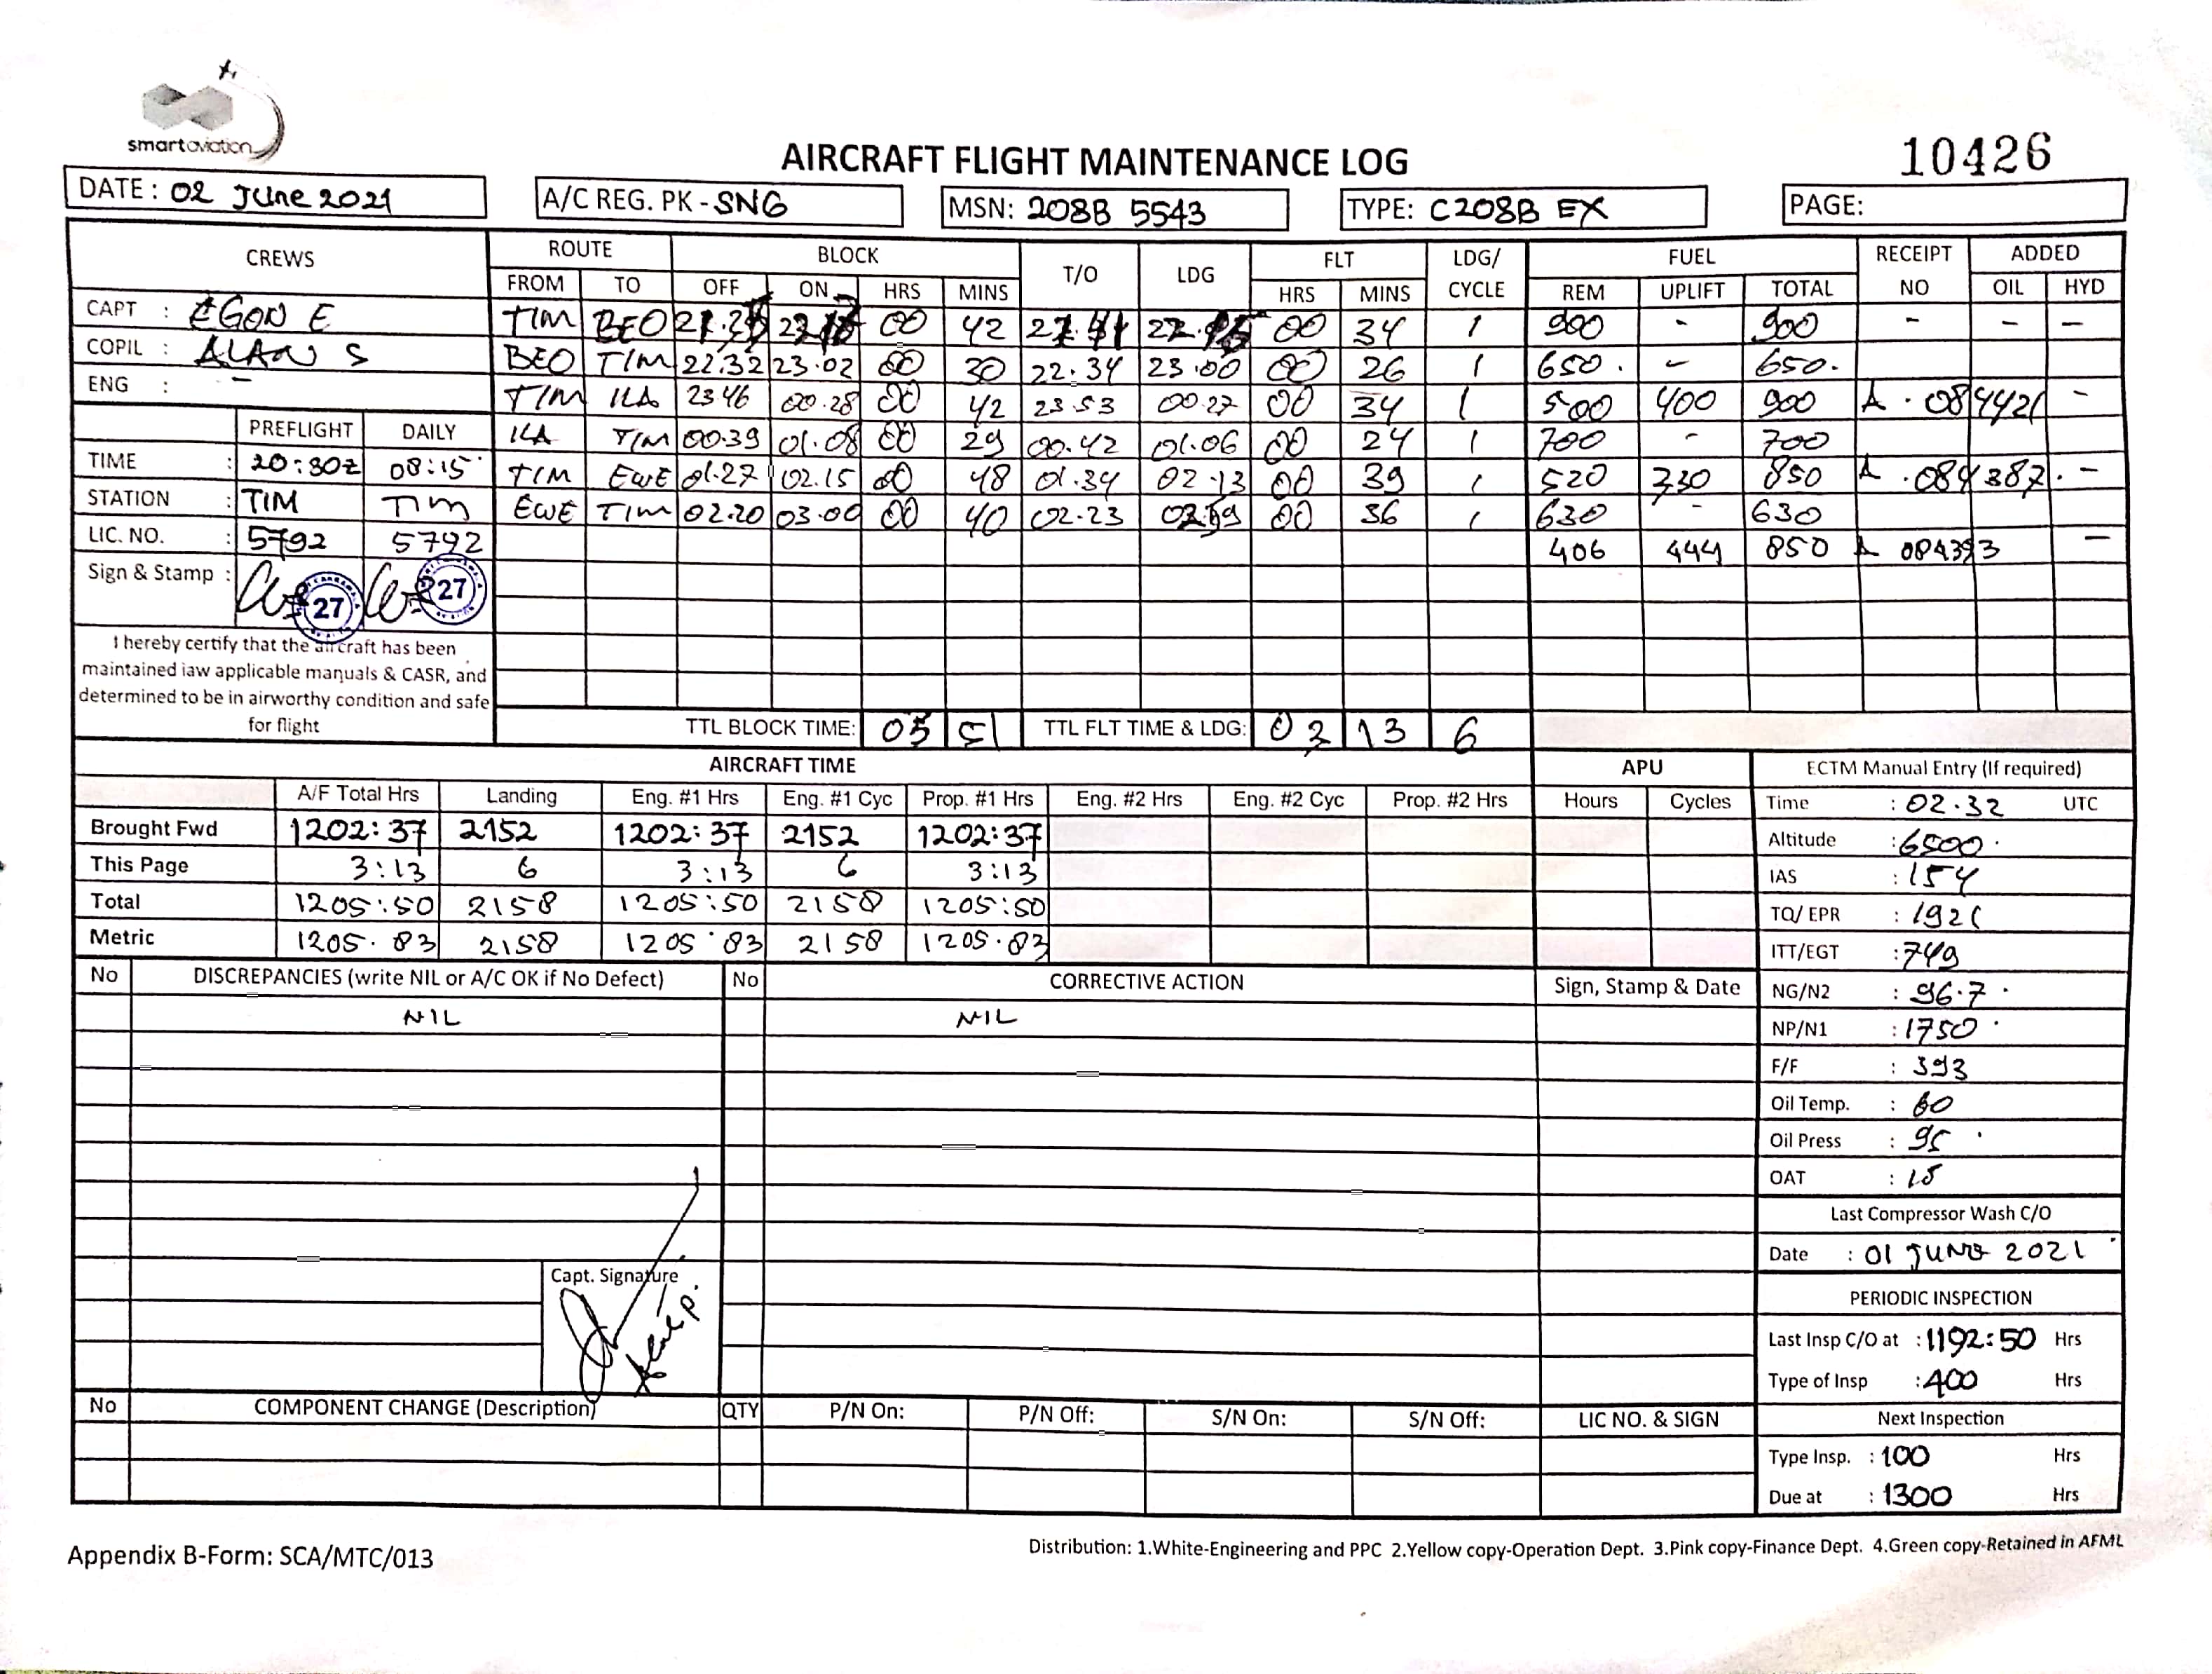 smartaviation
AIRCRAFT FLIGHT MAINTENANCE LOG
10426
DATE : 02 June 2021
A/C REG. PK - SNG
MSN: 208B 5543
TYPE: C208B EX
PAGE:
CREWS ROUTE BLOCK T/O LDG FLT LDG/ CYCLE FUEL RECEIPT NO ADDED
FROM TO OFF ON HRS MINS HRS MINS REM UPLIFT TOTAL OIL HYD
CAPT : EGON E
COPIL : ALAN S
ENG : -
TIM BEO 00 42 00 34 1 900 - 900 - - -
BEO TIM 22.32 23.02 00 30 22.34 23.00 00 26 1 650. - 650.
TIM ILA 23 46 00.28 00 42 23 53 00.27 00 34 1 500 400 900 A . 084421 -
ILA TIM 00.39 01.08 00 29 00.42 01.06 00 24 1 700 - 700
TIM EWE 01.27 02.15 00 48 01.34 02.13 00 39 1 520 330 850 A .084387. -
EWE TIM 02.20 03.00 00 40 02.23 02.59 00 36 1 630 - 630
406 444 850 A 084393 -
PREFLIGHT DAILY
TIME : 20:30z 08:15
STATION : TIM TIM
LIC. NO. : 5792 5792
Sign & Stamp :
27 27
I hereby certify that the aircraft has been
maintained iaw applicable manuals & CASR, and
determined to be in airworthy condition and safe
for flight
TTL BLOCK TIME: 03 51 TTL FLT TIME & LDG: 03 13 6
AIRCRAFT TIME
A/F Total Hrs Landing Eng. #1 Hrs Eng. #1 Cyc Prop. #1 Hrs Eng. #2 Hrs Eng. #2 Cyc Prop. #2 Hrs
Brought Fwd 1202:37 2152 1202:37 2152 1202:37
This Page 3:13 6 3:13 6 3:13
Total 1205:50 2158 1205:50 2158 1205:50
Metric 1205.83 2158 1205.83 2158 1205.83
APU
Hours Cycles
ECTM Manual Entry (If required)
Time : 02.32 UTC
Altitude : 6500
IAS : 154
TQ/ EPR : 1921
ITT/EGT : 749
NG/N2 : 96.7
NP/N1 : 1750
F/F : 393
Oil Temp. : 60
Oil Press : 95
OAT : 15
Last Compressor Wash C/O
Date : 01 JUNE 2021
PERIODIC INSPECTION
Last Insp C/O at : 1192:50 Hrs
Type of Insp : 400 Hrs
Next Inspection
Type Insp. : 100 Hrs
Due at : 1300 Hrs
No DISCREPANCIES (write NIL or A/C OK if No Defect) No CORRECTIVE ACTION Sign, Stamp & Date
NIL NIL
Capt. Signature
No COMPONENT CHANGE (Description) QTY P/N On: P/N Off: S/N On: S/N Off: LIC NO. & SIGN
Appendix B-Form: SCA/MTC/013
Distribution: 1.White-Engineering and PPC 2.Yellow copy-Operation Dept. 3.Pink copy-Finance Dept. 4.Green copy-Retained in AFML